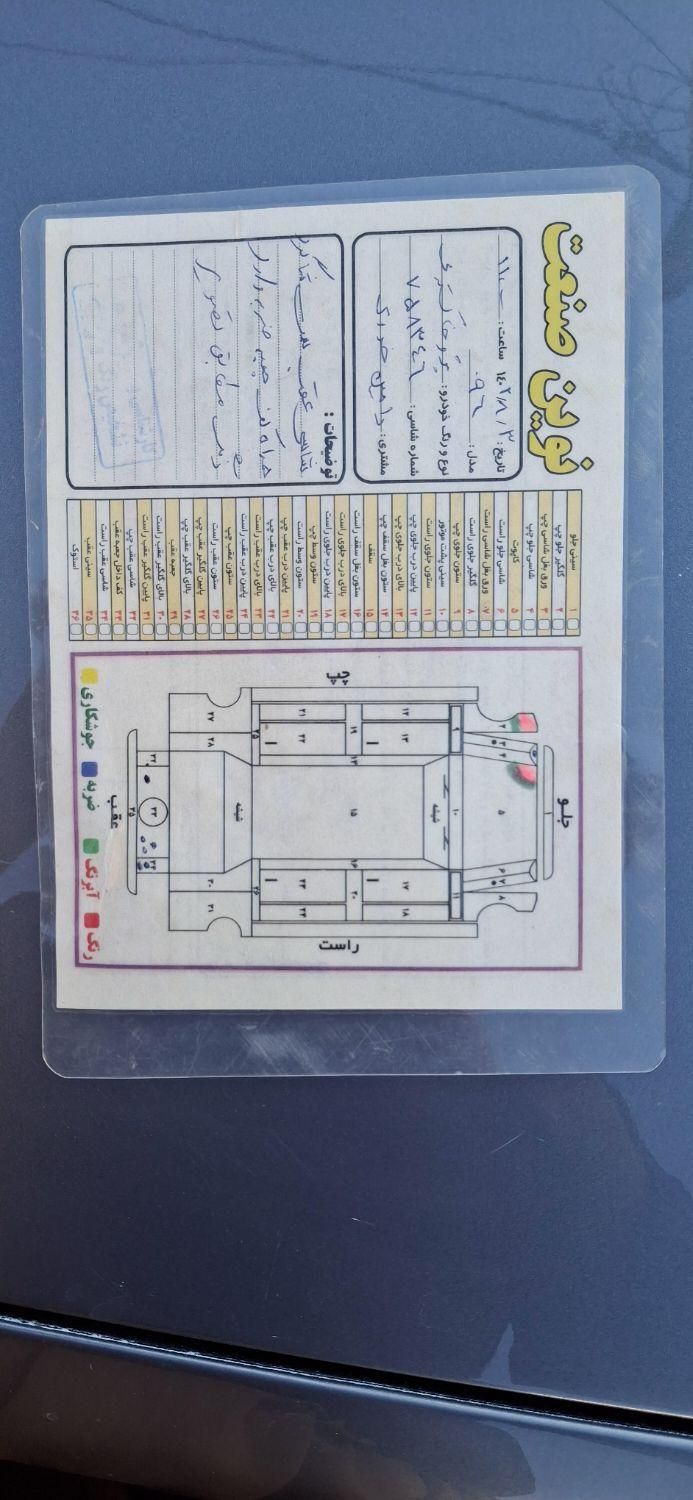 نوین صنعت
تاریخ: ۳ / ۸ / ۱۴۰۲ ساعت: ۱۱:۰۰
مدل: ۰۹۶
نوع و رنگ خودرو:
شماره شاسی: ۷۵۸۳۴۶
مشتری:
توضیحات:
شاسی عقب
مطابق تصویر
۱ سینی جلو
۲ گلگیر جلو چپ
۳ ورق بغل شاسی چپ
۴ شاسی جلو چپ
۵ کاپوت
۶ شاسی جلو راست
۷ ورق بغل شاسی راست
۸ گلگیر جلوی راست
۹ ستون جلوی چپ
۱۰ سینی پشت موتور
۱۱ ستون جلوی راست
۱۲ پایین درب جلوی چپ
۱۳ بالای درب جلوی چپ
۱۴ ستون بغل سقف چپ
۱۵ سقف
۱۶ ستون بغل سقف راست
۱۷ بالای درب جلوی راست
۱۸ پایین درب جلوی راست
۱۹ ستون وسط چپ
۲۰ ستون وسط راست
۲۱ پایین درب عقب چپ
۲۲ بالای درب عقب چپ
۲۳ بالای درب عقب راست
۲۴ پایین درب عقب راست
۲۵ ستون عقب چپ
۲۶ ستون عقب راست
۲۷ پایین گلگیر عقب چپ
۲۸ بالای گلگیر عقب چپ
۲۹ جعبه عقب
۳۰ بالای گلگیر عقب راست
۳۱ پایین گلگیر عقب راست
۳۲ شاسی عقب چپ
۳۳ کف داخل جعبه عقب
۳۴ شاسی عقب راست
۳۵ سینی عقب
۳۶ استوک
جلو
چپ
راست
عقب
شیشه
شیشه
رنگ
آبرنگ
ضربه
جوشکاری